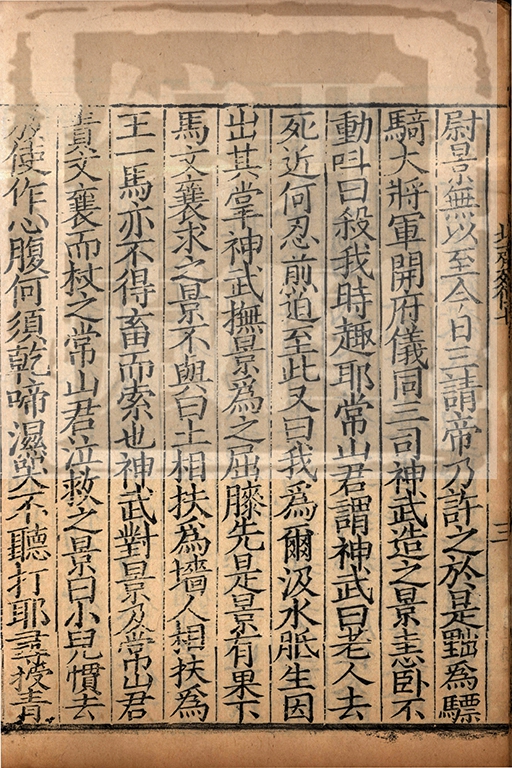 尉景無以至今日三請帝乃許之於是黜為驃
騎大將軍開府儀同三司神武造之景恚卧不
動呌曰殺我時趣耶常山君謂神武曰老人去
死近何忍煎迫至此又曰我爲爾汲水胝生因
出其掌神武撫景爲之屈膝先是景有果下
馬文襄求之景不與曰土相扶為墻人相扶為
王一馬亦不得畜而索也神武對景及常山君
責文襄而杖之常山君泣救之景曰小兒慣去
使作心腹何須乾啼濕哭不聽打耶尋授青